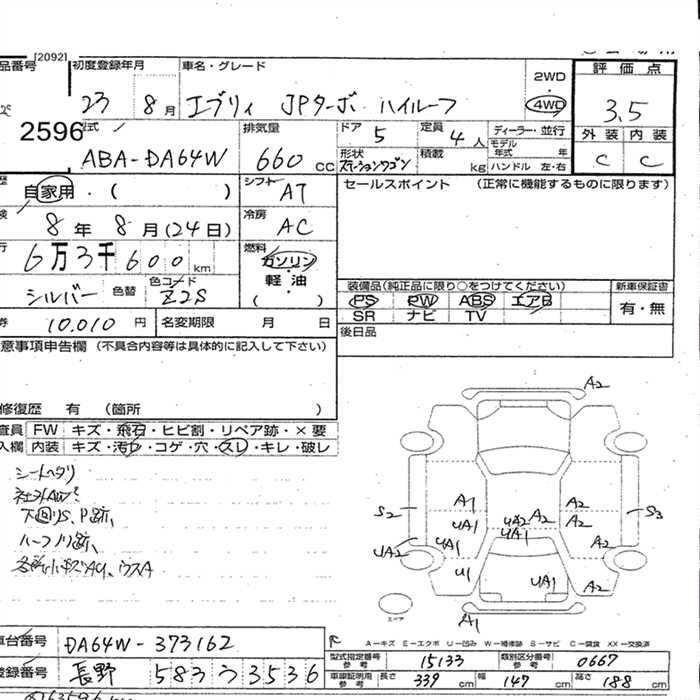 [2092]
品番号 初度登録年月 車名・グレード 2WD 評価点
23 8月 エブリィ JPターボ ハイルーフ 4WD 3.5
2596 式 排気量 ドア 5 定員 4人 ディーラー・並行 外装 内装
ABA-DA64W 660cc 形状 ステーションワゴン 積載 kg モデル年式 年 ハンドル 左・右 C C
歴 自家用・( ) シフト AT セールスポイント (正常に機能するものに限ります)
検 8年 8月(24日) 冷房 AC
行 6万3千600km 燃料 ガソリン 軽油 ( )
シルバー 色替 色コード Z2S
装備品(純正品に限り○をつけてください) 新車保証書
PS PW ABS エアB 有・無
SR ナビ TV
券 10,010円 名変期限 月 日 後日品
意事項申告欄 (不具合内容等は具体的に記入して下さい)
修復歴 有 (箇所 )
査員 FW キズ・飛石・ヒビ割・リペア跡・×要
入欄 内装 キズ・汚れ・コゲ・穴・スレ・キレ・破レ
シートヘタリ
社外AW
下回りS、P跡、
ハーフノリ跡、
A2
A1 A2
S2 UA1 UA2 A2 A2 S3
UA2 UA1 UA1 A2
U1 UA1 A2
A1
スペア
A-キズ E-エクボ U-凹み W-補修跡 S-サビ C-腐食 XX-交換済
車台番号 DA64W-373162
登録番号 長野 583 う 3536
型式指定番号 参考 15133 類別区分番号 参考 0667
車庫証明用 参考 長さ 339cm 幅 147cm 高さ 188cm